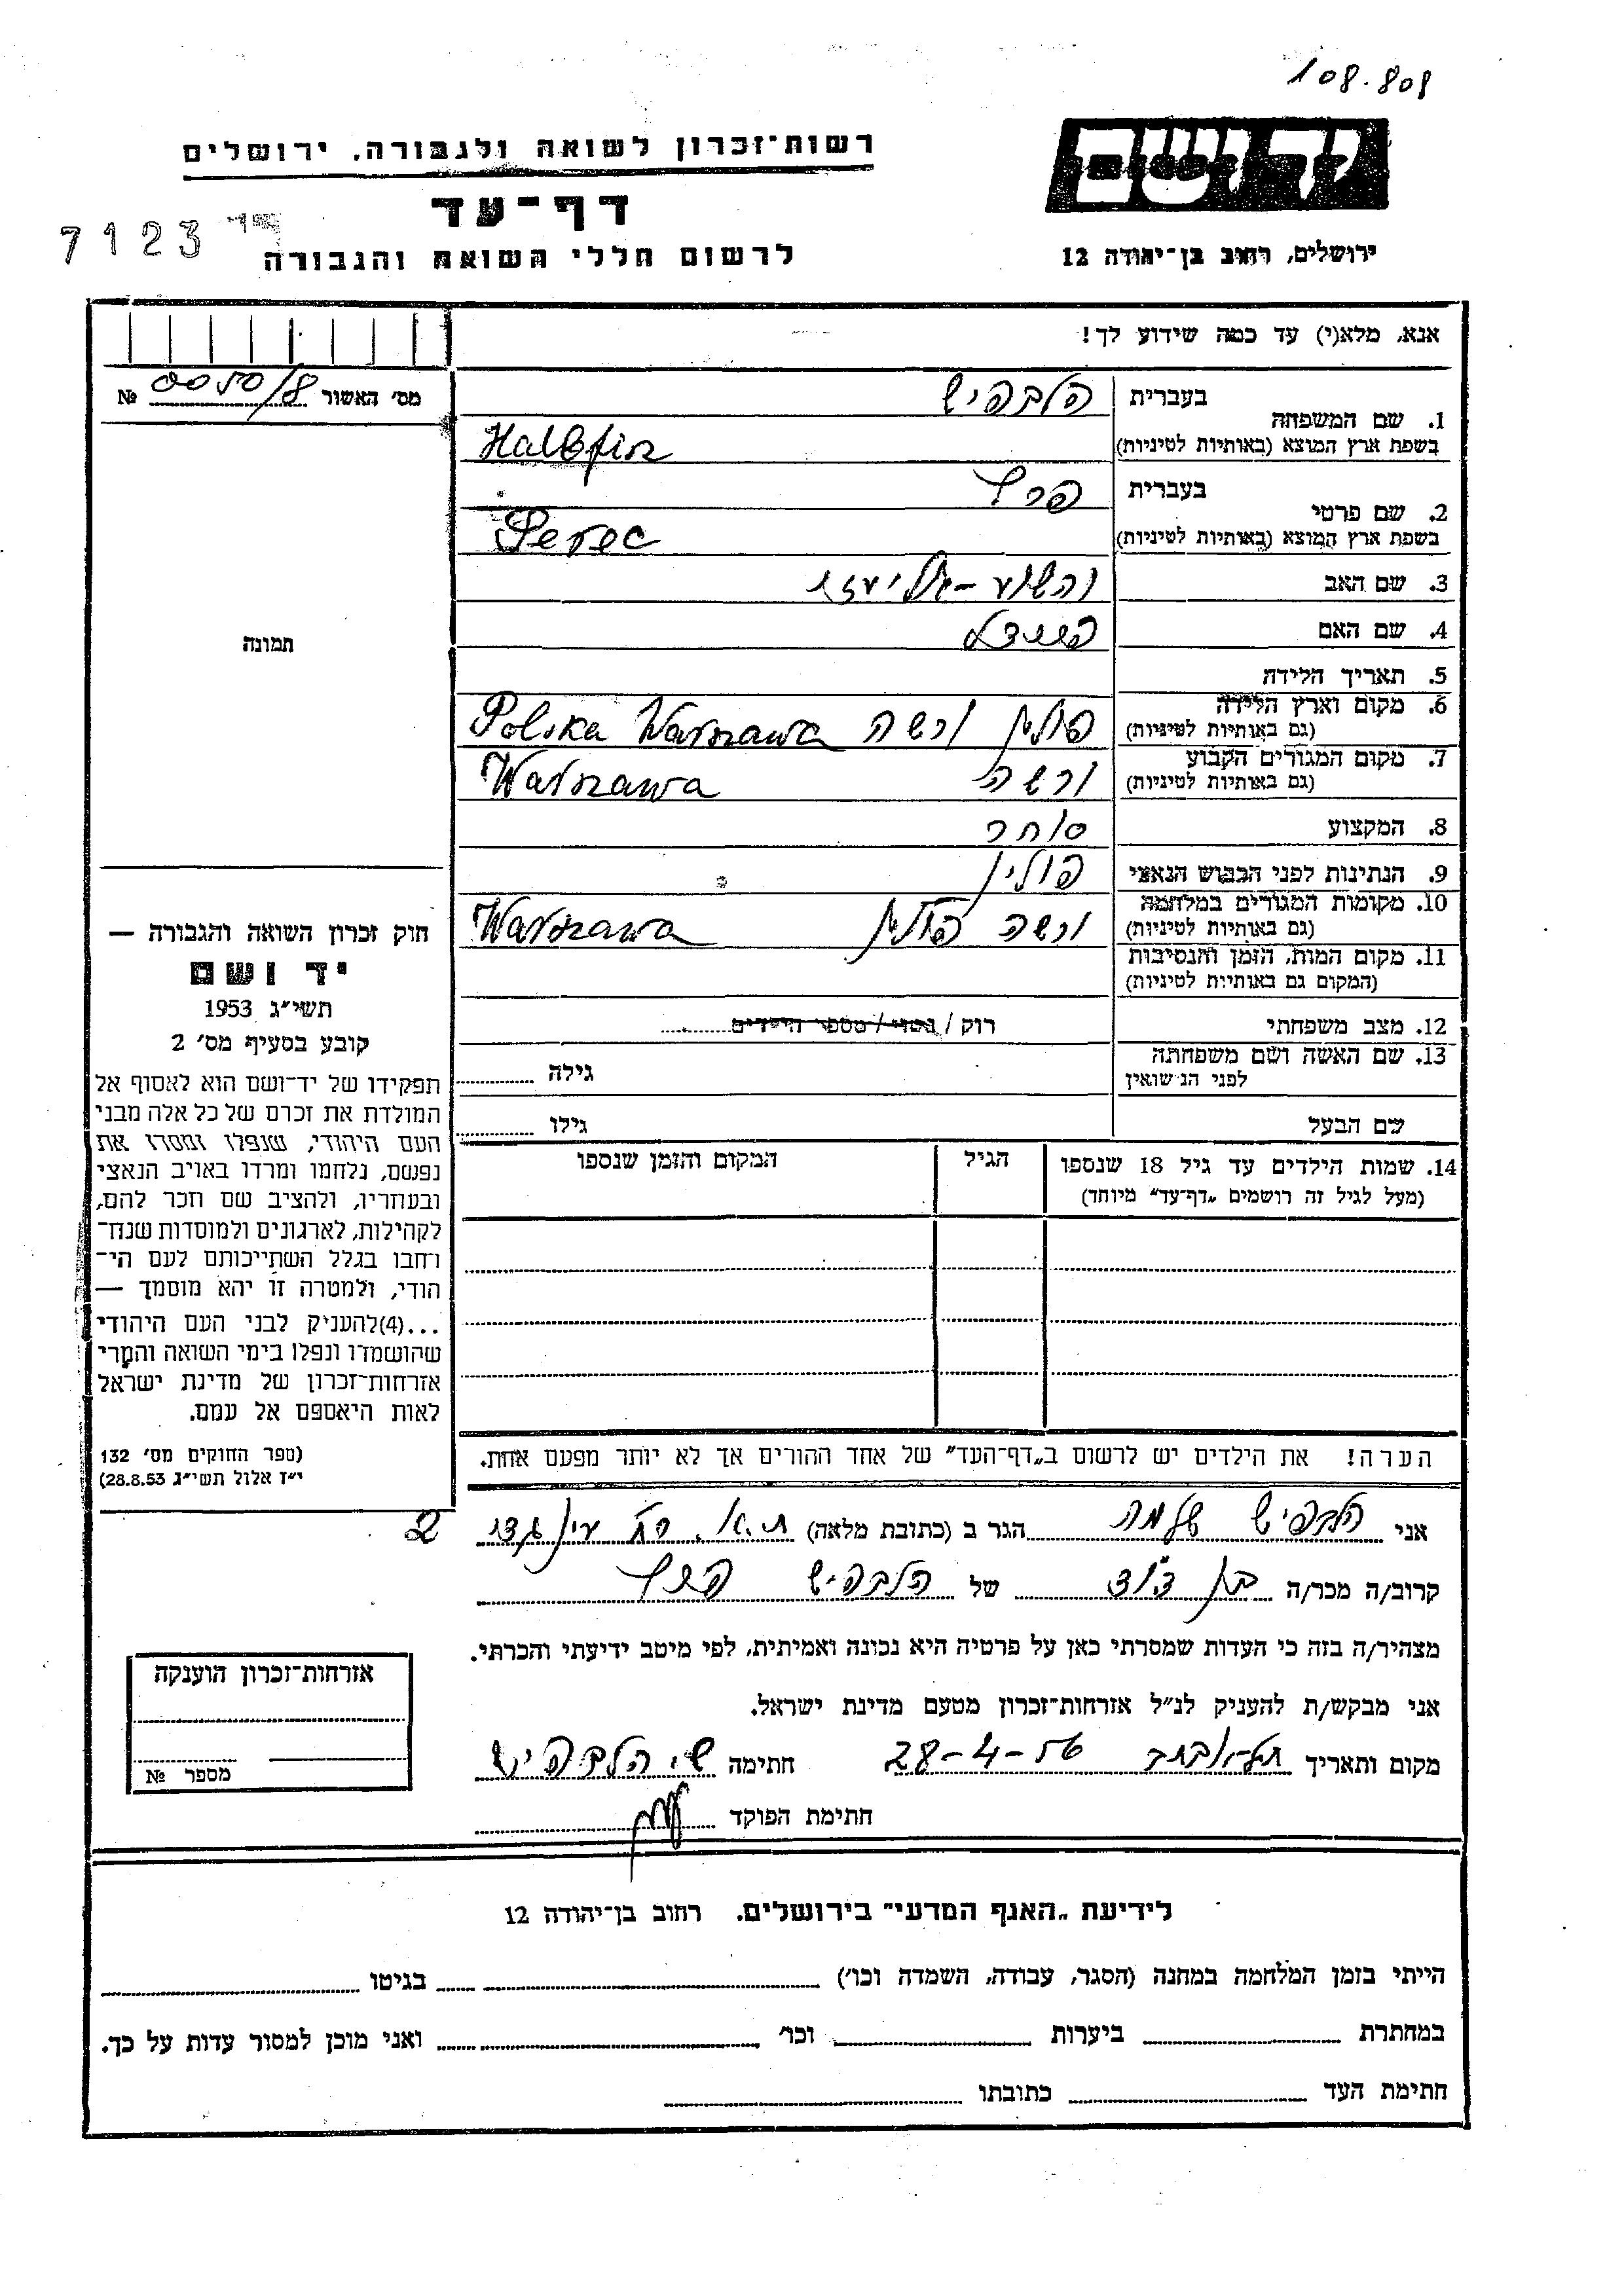 108.808
יד ושם
רשות־זכרון לשואה ולגבורה, ירושלים
דף־עד
7123
לרשום חללי השואה והגבורה
ירושלים, רחוב בן־יהודה 12
אנא, מלא(י) עד כמה שידוע לך!
מס' האשור № 0050/8
1. שם המשפחה
בעברית הלבפיש
בשפת ארץ המוצא (באותיות לטיניות) Halbfis
2. שם פרטי
בעברית פרץ
בשפת ארץ המוצא (באותיות לטיניות) Perec
3. שם האב יהשוע - אליעזר
4. שם האם
5. תאריך הלידה
6. מקום וארץ הלידה
(גם באותיות לטיניות) פולין ורשה Polska Warszawa
7. מקום המגורים הקבוע
(גם באותיות לטיניות) ורשה Warszawa
8. המקצוע סוחר
9. הנתינות לפני הכבוש הנאצי פולין
10. מקומות המגורים במלחמה
(גם באותיות לטיניות) ורשה פולין Warszawa
11. מקום המות, הזמן והנסיבות
(המקום גם באותיות לטיניות)
12. מצב משפחתי רוק / נשוי / מספר הילדים
13. שם האשה ושם משפחתה
לפני הנישואין גילה
שם הבעל גילו
14. שמות הילדים עד גיל 18 שנספו הגיל המקום והזמן שנספו
(מעל לגיל זה רושמים „דף־עד" מיוחד)
הערה! את הילדים יש לרשום ב„דף־העד" של אחד ההורים אך לא יותר מפעם אחת.
תמונה
חוק זכרון השואה והגבורה —
יד ושם
תשי"ג 1953
קובע בסעיף מס' 2
תפקידו של יד־ושם הוא לאסוף אל
המולדת את זכרם של כל אלה מבני
העם היהודי, שנפלו ומסרו את
נפשם, נלחמו ומרדו באויב הנאצי
ובעוזריו, ולהציב שם וזכר להם,
לקהילות, לארגונים ולמוסדות שנח־
רחבו בגלל השתייכותם לעם הי־
הודי, ולמטרה זו יהא מוסמך —
...(4)להעניק לבני העם היהודי
שהושמדו ונפלו בימי השואה והמרי
אזרחות־זכרון של מדינת ישראל
לאות היאספם אל עמם.
(ספר החוקים מס' 132
י"ז אלול תשי"ג 28.8.53)
אני הלבפיש שלמה הגר ב (כתובת מלאה) ת.א. רח עין גדי 2
קרוב/ה מכר/ה בן דוד של הלבפיש פרץ
מצהיר/ה בזה כי העדות שמסרתי כאן על פרטיה היא נכונה ואמיתית, לפי מיטב ידיעתי והכרתי.
אני מבקש/ת להעניק לנ"ל אזרחות־זכרון מטעם מדינת ישראל.
מקום ותאריך תל-אביב 28-4-56 חתימה ש. הלבפיש
חתימת הפוקד
אזרחות־זכרון הוענקה
מספר №
לידיעת „האגף המדעי" בירושלים. רחוב בן־יהודה 12
הייתי בזמן המלחמה במחנה (הסגר, עבודה, השמדה וכו') בגיטו
במחתרת ביערות וכו' ואני מוכן למסור עדות על כך.
חתימת העד כתובתו